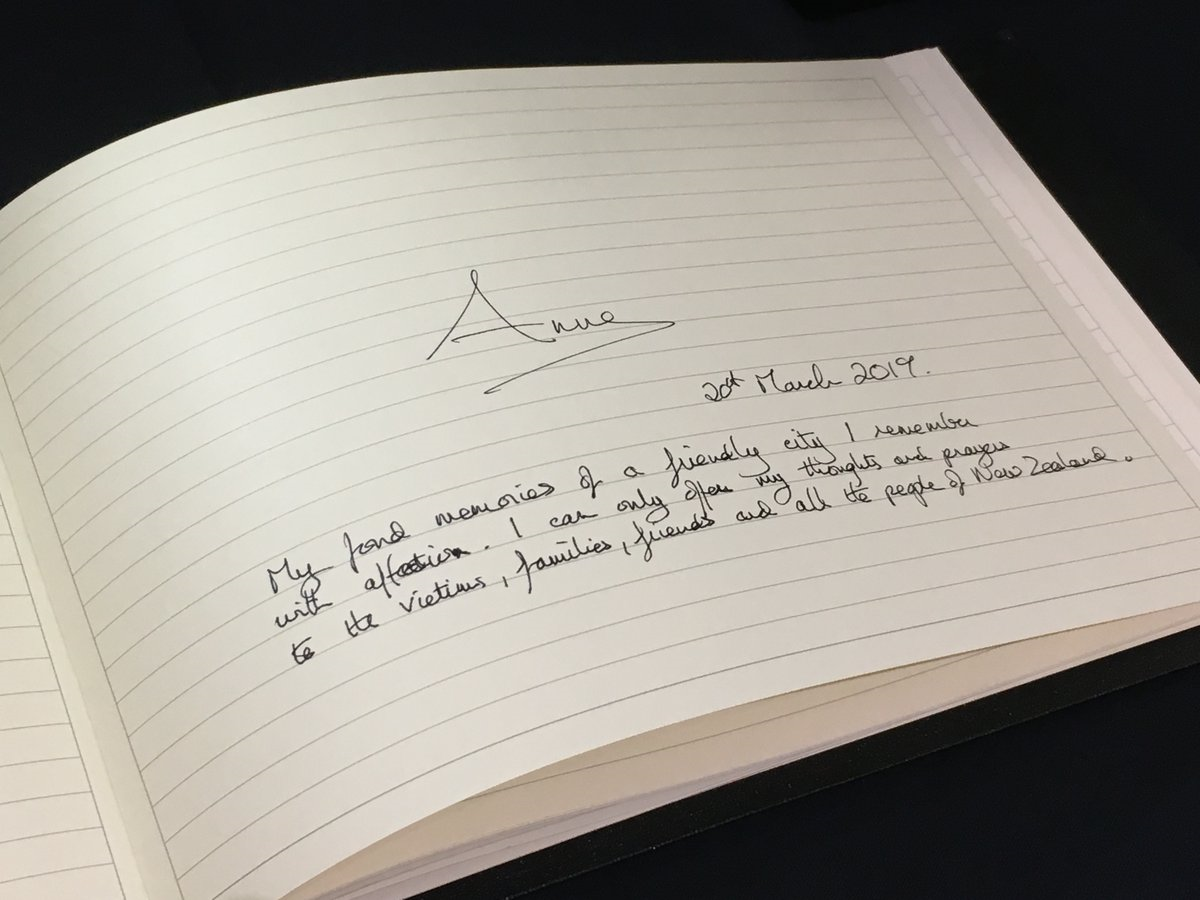 Anne
20th March 2019.
My fond memories of a friendly city I remember
with affection. I can only offer my thoughts and prayers
to the victims, families, friends and all the people of New Zealand.